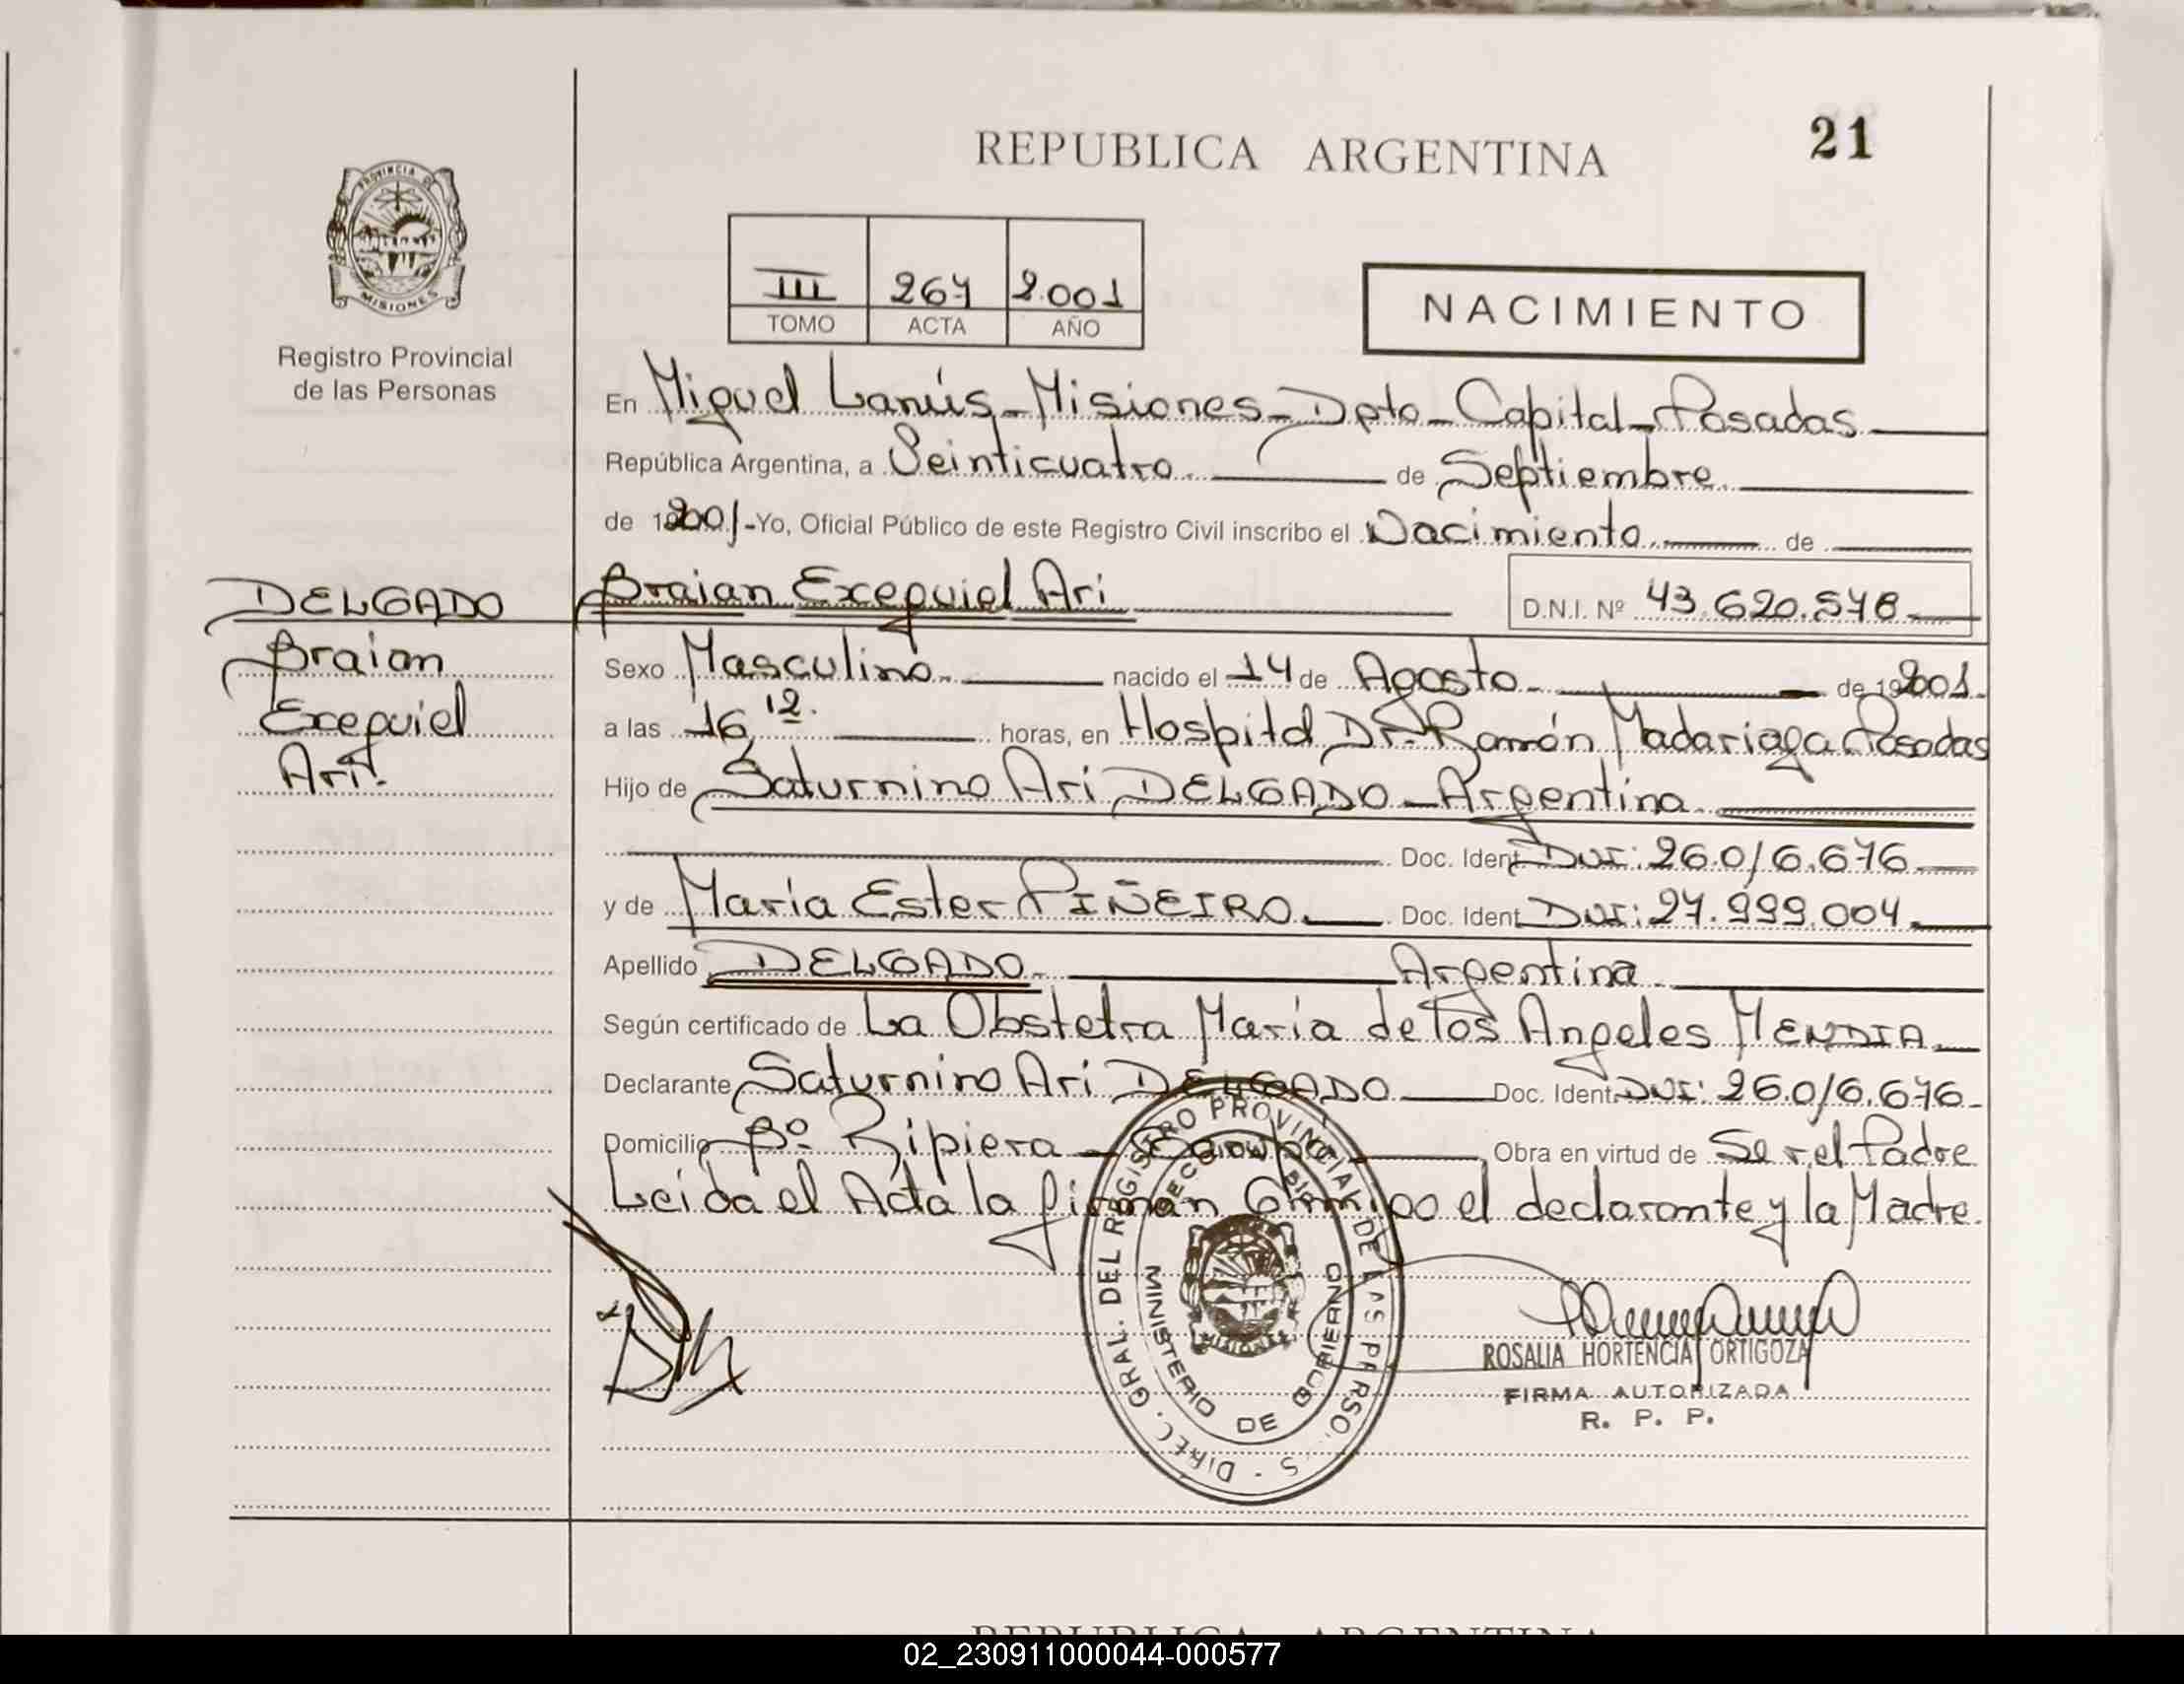 REPUBLICA ARGENTINA
21
PROVINCIA DE
MISIONES
Registro Provincial
de las Personas
III 267 2.001
TOMO ACTA AÑO
NACIMIENTO
En Miguel Lanús - Misiones - Dpto - Capital - Posadas
República Argentina, a Veinticuatro de Septiembre
de 2001 - Yo, Oficial Público de este Registro Civil inscribo el Nacimiento de
DELGADO
Braian
Exequiel
Ari.
Braian Exequiel Ari D.N.I. Nº 43.620.578
Sexo Masculino nacido el 14 de Agosto de 2001
a las 16 12. horas, en Hospital Dr. Ramón Madariaga Posadas
Hijo de Saturnino Ari DELGADO - Argentina
Doc. Ident DNI: 26.016.676
y de María Ester PIÑEIRO Doc. Ident DNI: 27.999.004
Apellido DELGADO Argentina
Según certificado de La Obstetra María de los Angeles MENDIA
Declarante Saturnino Ari DELGADO Doc. Ident. DNI: 26.016.676
Domicilio Bº Ripiera Obra en virtud de Ser el Padre
Leida el Acta la firman Conmigo el declarante y la Madre.
DIREC. GRAL. DEL REGISTRO PROVINCIAL DE LAS PERSO S
MINISTERIO DE GOBIERNO
MISIONES
ROSALIA HORTENCIA ORTIGOZA
FIRMA AUTORIZADA
R. P. P.
REPUBLICA ARGENTINA
02_230911000044-000577